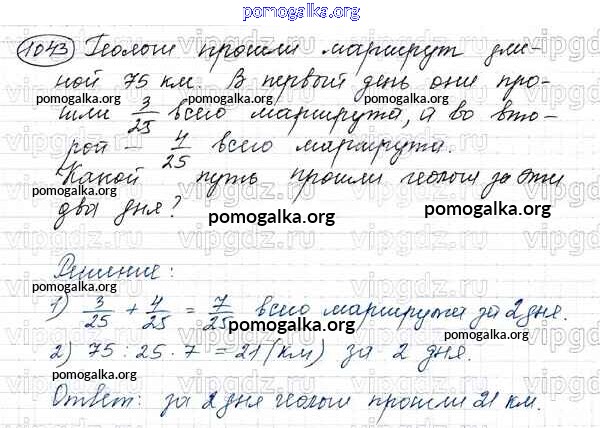 pomogalka.org
1043 Геологи прошли маршрут дли-
ной 75 км. В первый день они про-
pomogalka.org pomogalka.org
шли 3/25 всего маршрута, а во вто-
рой – 4/25 всего маршрута.
pomogalka.org pomogalka.org
Какой путь прошли геологи за эти
два дня?
pomogalka.org pomogalka.org
Решение:
pomogalka.org
1) 3/25 + 4/25 = 7/25 всего маршрута за 2 дня.
pomogalka.org pomogalka.org
2) 75 : 25 · 7 = 21 (км) за 2 дня.
pomogalka.org
Ответ: за 2 дня геологи прошли 21 км.
pomogalka.org